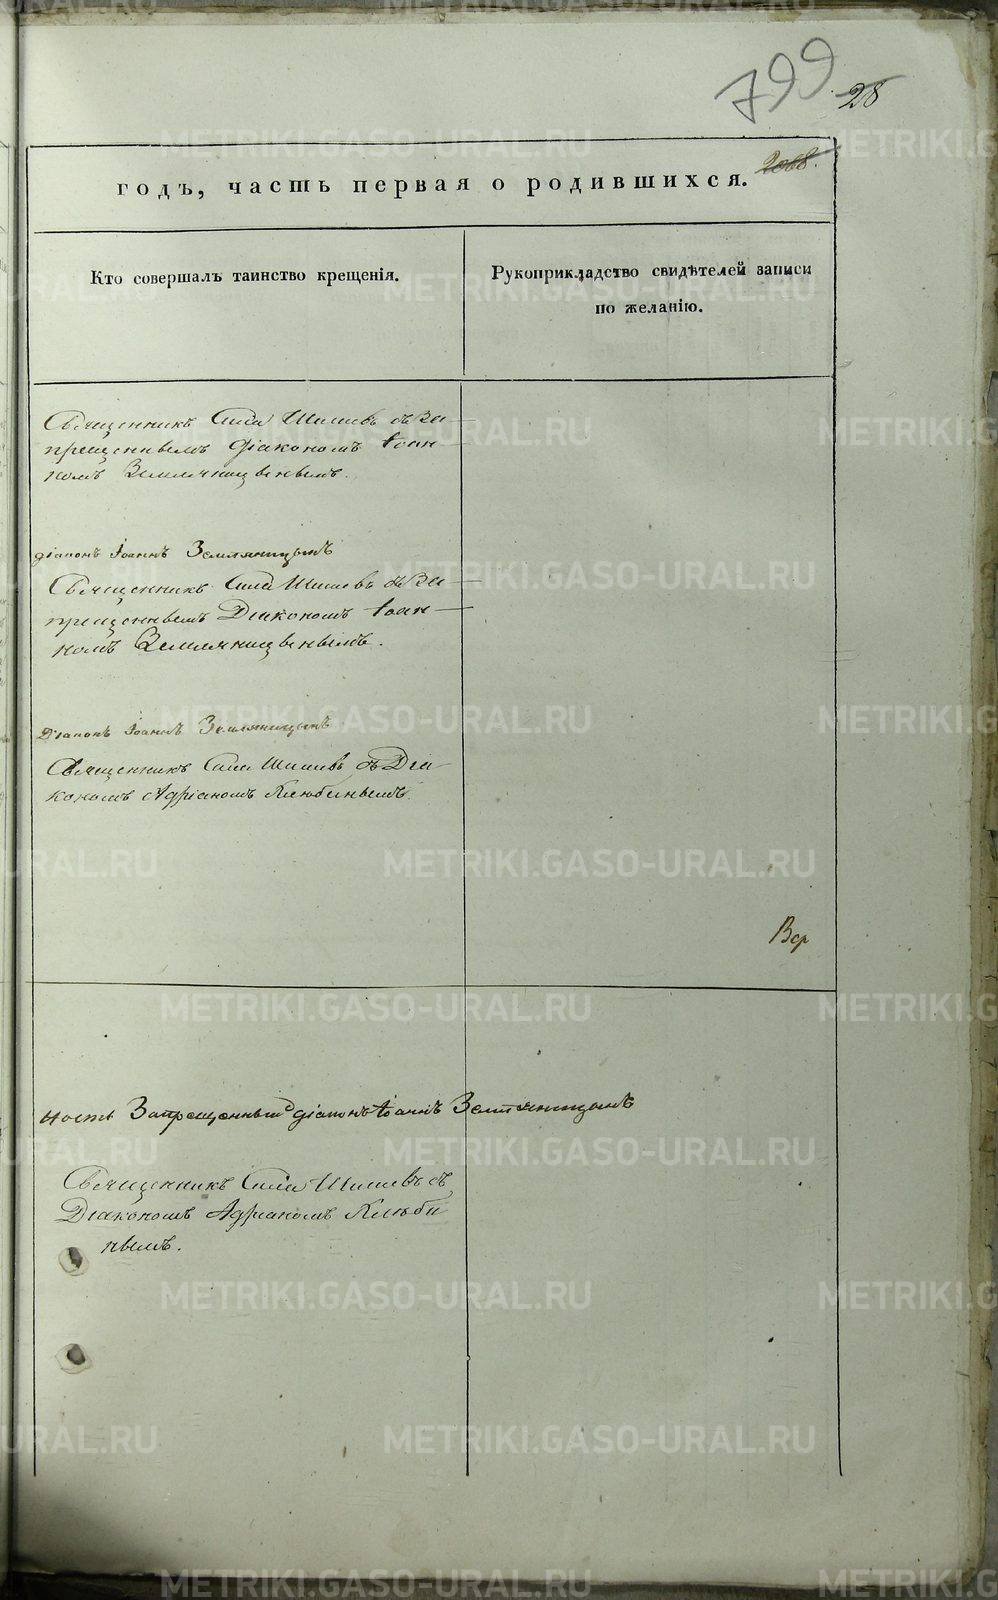 799
28
2068.
годъ, часть первая о родившихся.
Кто совершалъ таинство крещенія.
Рукоприкладство свидѣтелей записи
по желанію.
Священникъ Сила Шишевъ съ За-
прещеннымъ Діакономъ Іоан-
номъ Земляницынымъ.
діаконъ Іоаннъ Земляницынъ
Священникъ Сила Шишевъ съ За-
прещеннымъ Діакономъ Іоан-
номъ Земляницынымъ.
Діаконъ Іоаннъ Земляницынъ
Священникъ Сила Шишевъ съ Діа-
кономъ Адріаномъ Клюбинымъ.
Вер
ность Запрещенный діаконъ Іоаннъ Земляницынъ
Священникъ Сила Шишевъ съ
Діакономъ Адріаномъ Клюби
нымъ.
METRIKI.GASO-URAL.RU